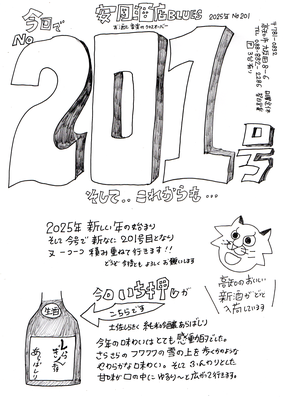 今回で
No
安岡酒店BLUES
2025年 No201
お酒と音楽の
201号
そして・・これからも…
2025年 新しい年の始まり
そして今号で新たに 201号目となり
又一つ一つ積み重ねて行きます!!
どうぞ今後とも よろしくお願いします
高知のおいしい
新酒がどどーと
入荷しています
今回いち押しが
こちらです
土佐しらぎく 純米吟醸 あらばしり
今年の味わいはとても感動的でした。
さらさらのフワフワの雪の上を歩くかのような
やわらかな味わい。そして ふんわりとした
甘味が口の中にゆるり〜と広がって行きます。
生酒
しらぎく
あらばしり